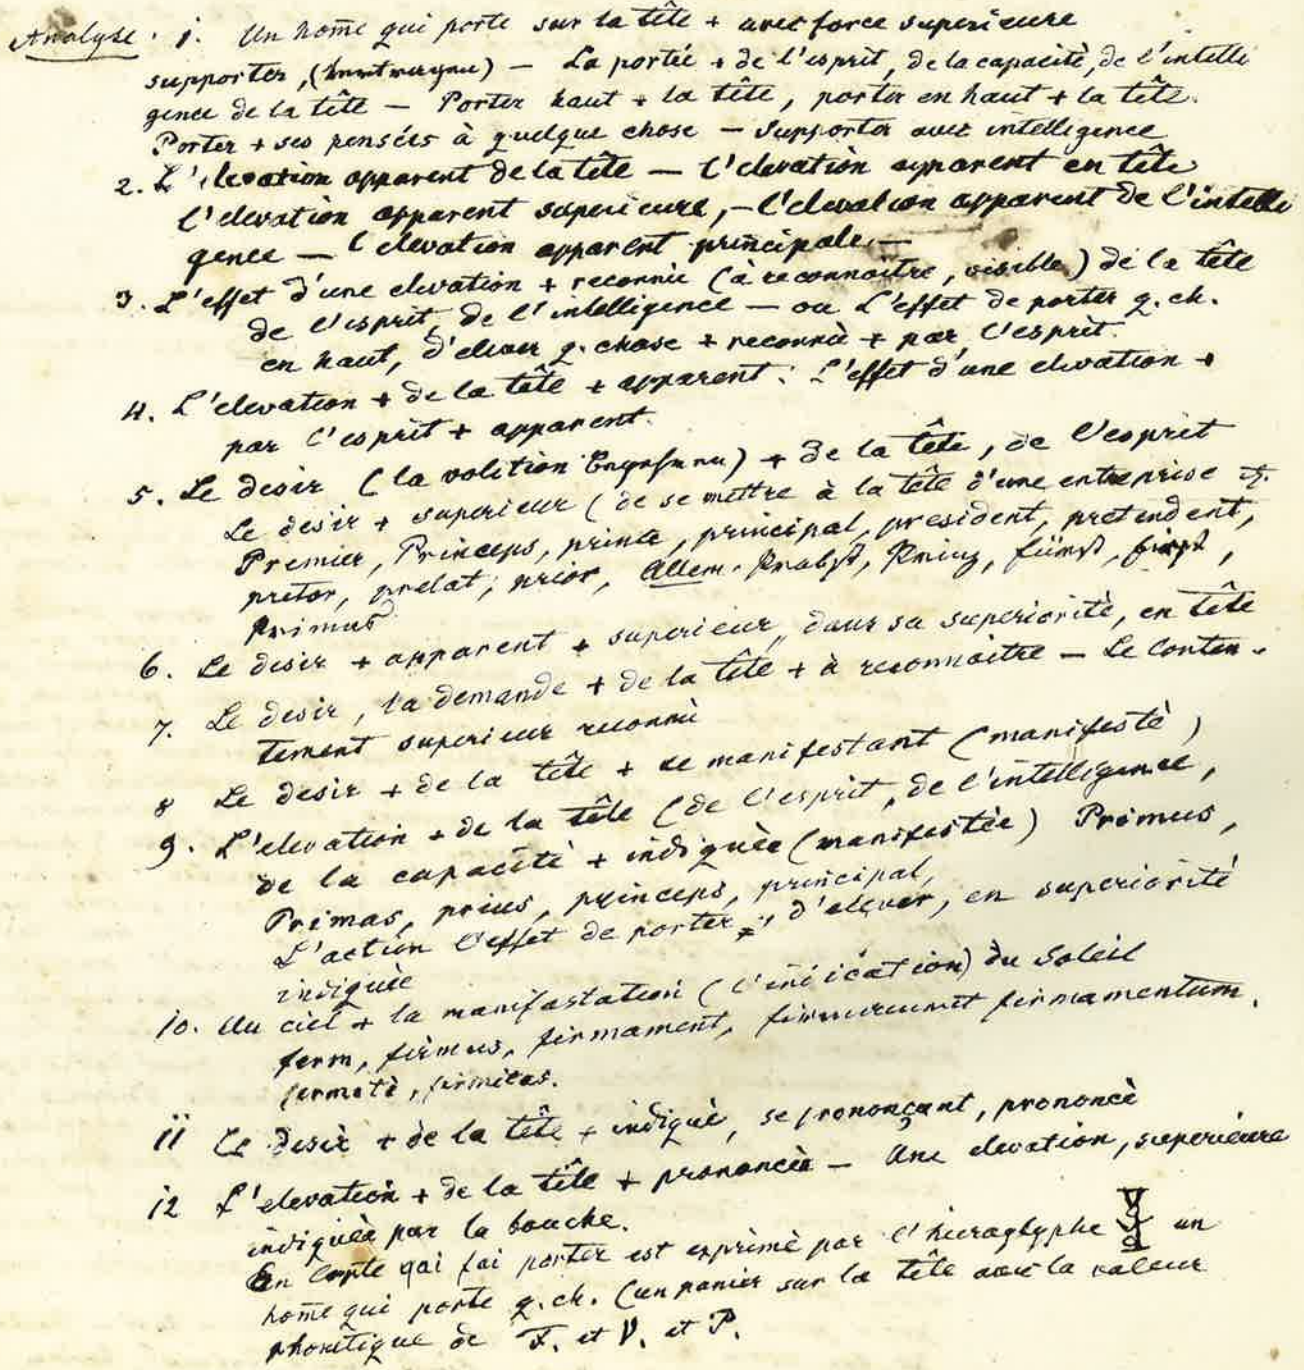 Analyse. 1. Un home qui porte sur la tête + avec force superieure
supporter, () — La portée + de l'esprit, de la capacité, de l'intelli
gence de la tête — Porter haut + la tête, porter en haut + la tête.
Porter + ses pensées à quelque chose — Supporter avec intelligence
2. L'elevation apparent de la tête — l'elevation apparent en tête
l'elevation apparent superieure, — l'elevation apparent de l'intelli
gence — l'elevation apparent principale. —
3. L'effet d'une elevation + reconnue (à reconnaître, visible) de la tête
de l'esprit, de l'intelligence — ou L'effet de porter q. ch.
en haut, d'elever q. chose + reconnù + par l'esprit.
4. L'elevation + de la tête + apparent: L'effet d'une elevation +
par l'esprit + apparent.
5. Le desir (la volition) + de la tête, de l'esprit
Le desir + superieur (de se mettre à la tête d'une entreprise
Premier, Princeps, prince, principal, president, pretendent,
pretor, prelat, prior, Allem. Probst, Prinz, fürst, first,
Primus
6. Le desir + apparent + superieur, dans sa superiorité, en tête
7. Le desir, la demande + de la tête + à reconnaitre — Le conten-
tement superieur reconnù
8 Le desir + de la tête + se manifestant (manifesté)
9. L'elevation + de la tête (de l'esprit, de l'intelligence,
de la capacité + indiquèe (manifestée) Primus,
Primas, prius, princeps, principal,
L'action l'effet de porter, d'elever, en superiorité
indiquèe
10. Au ciel + la manifestation (l'indication) du Soleil
ferm, firmus, firmament, firmamentum.
fermetè, firmitas.
11 Le desir + de la tête + indiquè, se prononçant, prononcè
12 L'elevation + de la tête + prononcèe — Une elevation, superieure
indiquèe par la bouche.
En Copte qai fai porter est exprimè par l'hieroglyphe un
home qui porte q. ch. (un panier sur la tête avec la valeur
phonetique de F. et V. et P.